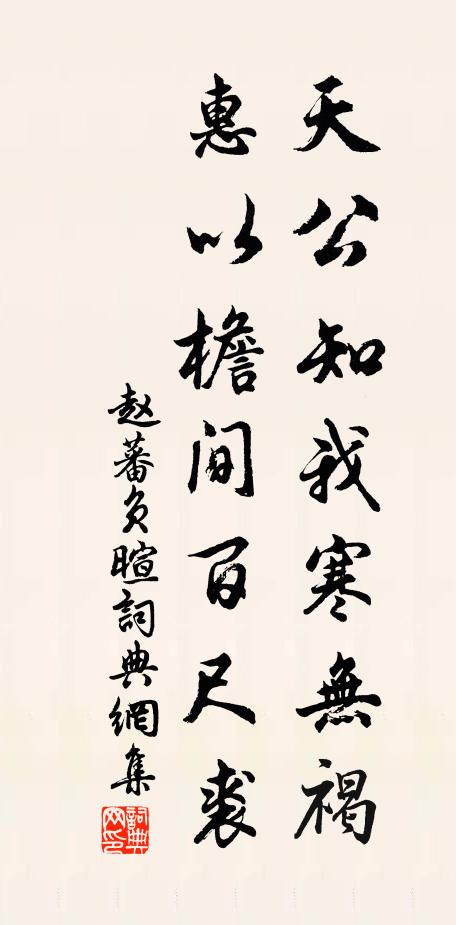 天公知我寒無褐
惠以檐間百尺裘
赵蕃负暄詞典網集
詞典网印